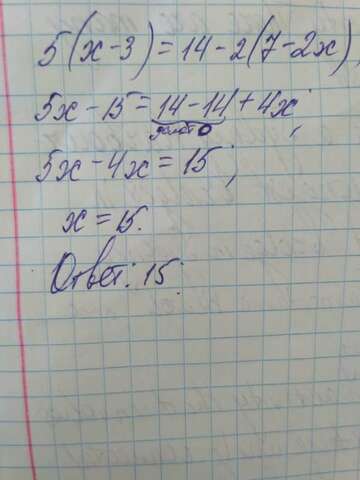 5(x-3)=14-2(7-2x),
5x-15=14-14+4x;
5x-4x=15;
x=15.
Ответ: 15.